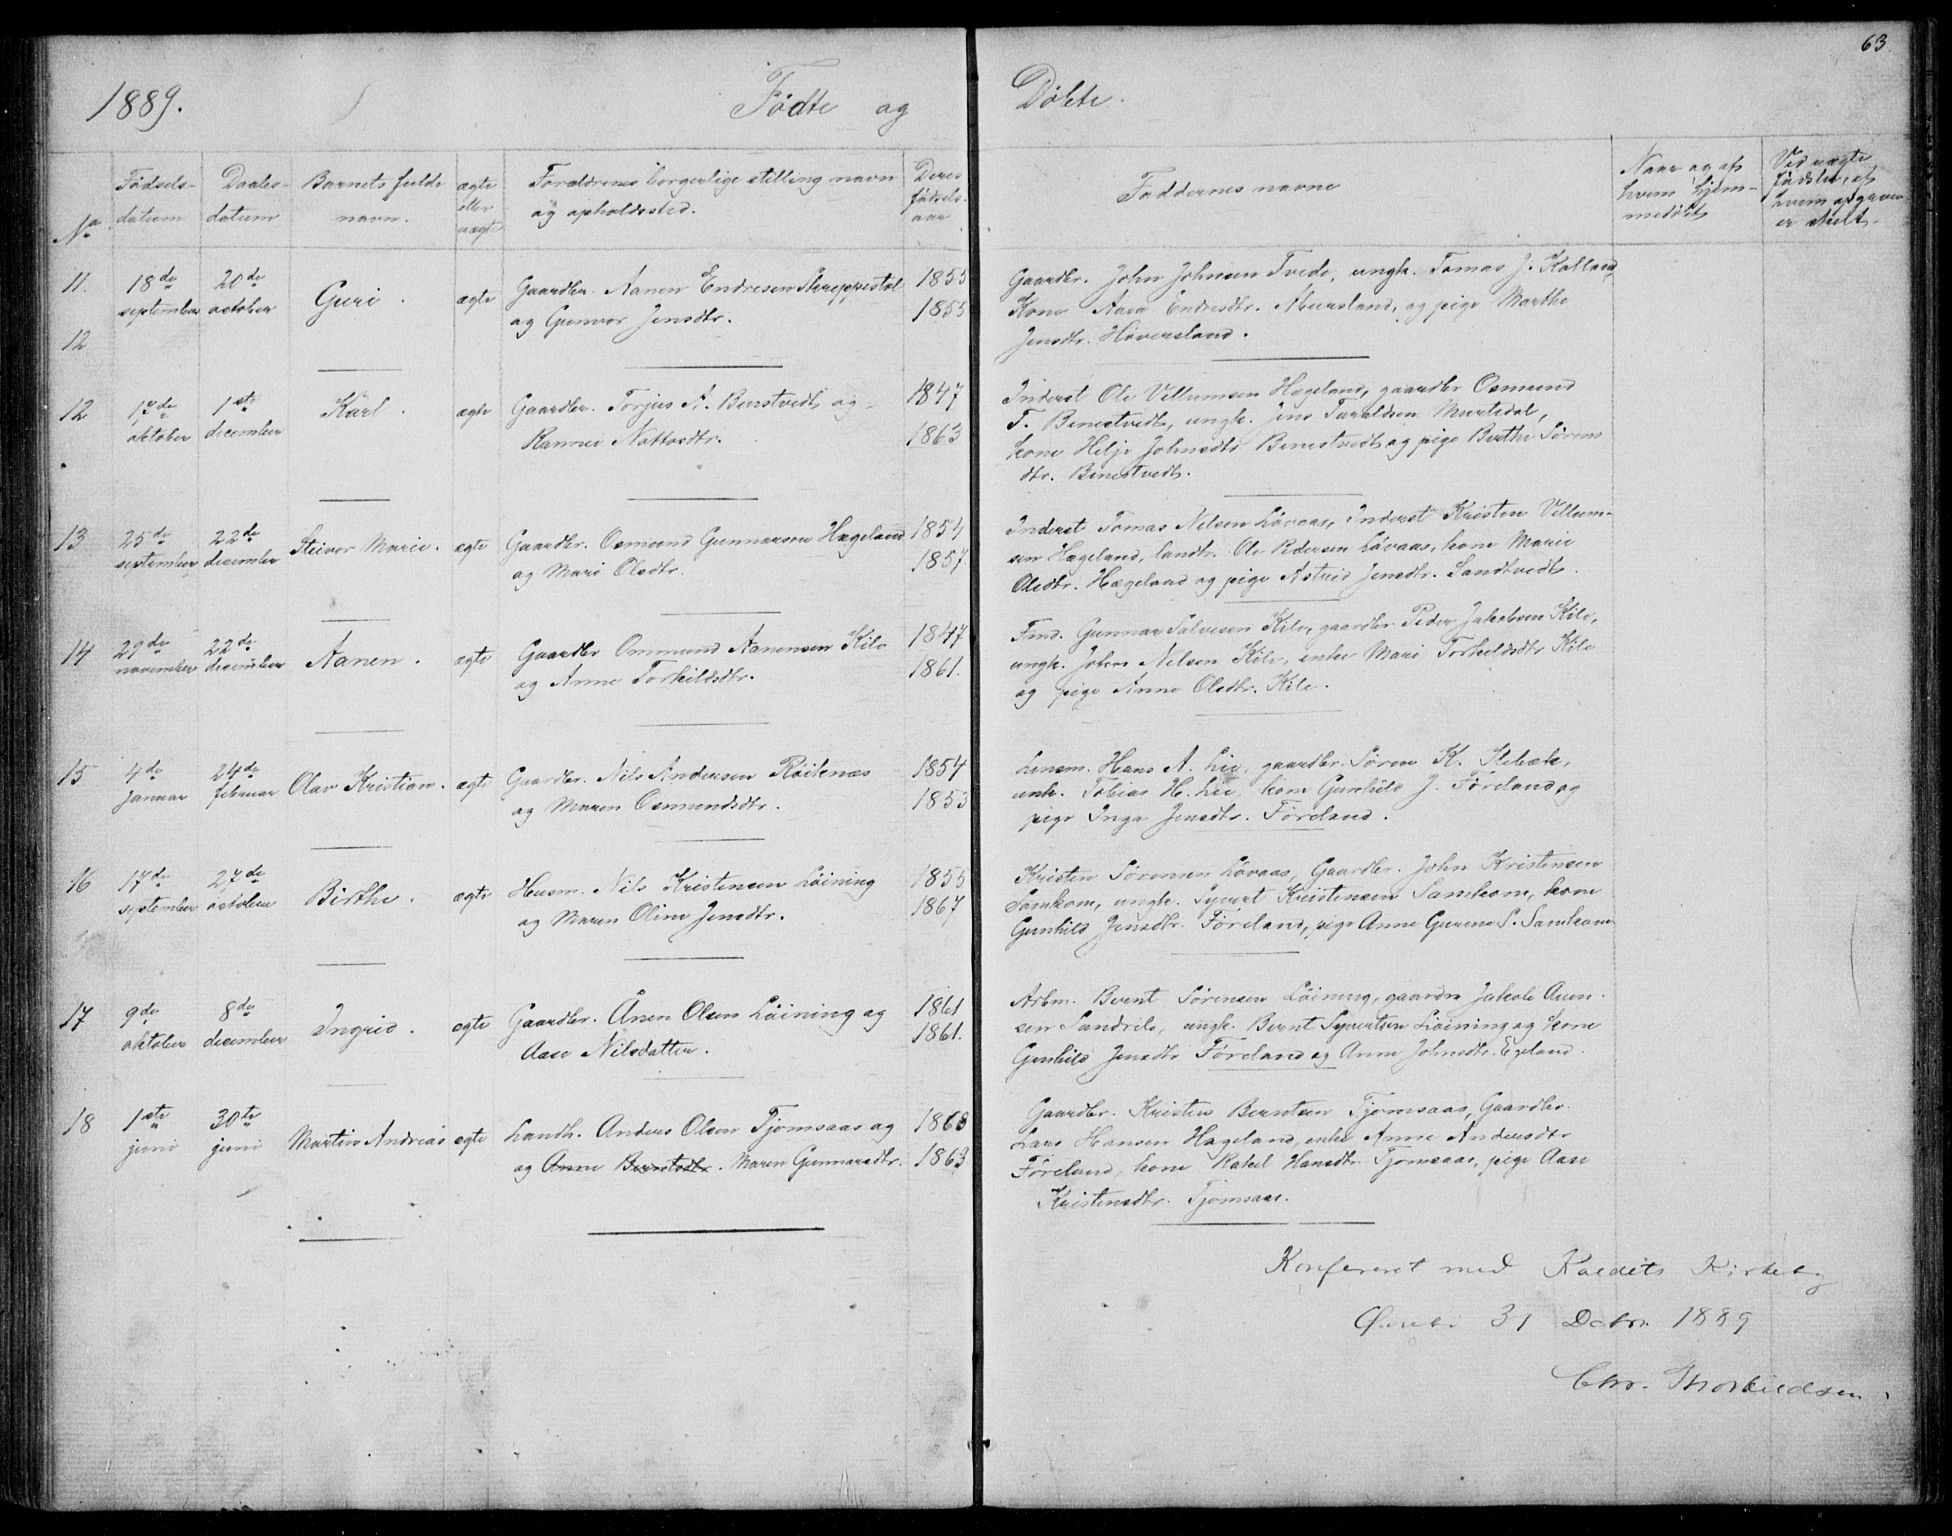 63.
1889. Födte og Döbte.
No
Födsels-
datum
Daabs-
datum
Barnets fulde
navn.
ægte
eller
uægte
Forældrenes borgerlige stilling navn
og opholdssted.
Deres
fødsels-
aar
Faddernes navne
Naar og af
hvem hjem-
medöbt
Ved uægte
fødsler, af
hvem opgaven
er meldt.
11. 18de september 20de october Guri. ægte
Gaardbr. Aanen Endresen Skreppestøl 1855
og Gunvor Jensdtr. 1855
Gaardbr. John Johnsen Tvede, ungk. Tomas J. Kalland,
Kone Aasa Endresdtr. Mursland, og pige Marthe
Jensdtr. Håversland.
12
12 17de oktober 1ste december Karl. ægte
Gaardbr. Torjus A. Benestvedt og 1847
Rannei Nattasdtr. 1863
Inderst Ole Villumsen Hægeland, gaardbr Osmund
T. Benestvedt, ungk. Jens Taraldsen Murtedal,
kone Helje Johnsdtr Benestvedt og pige Berthe Sörens
dtr. Benestvedt.
13 25de september 22de december Steivor Marie. ægte
Gaardbr. Osmund Gunnarson Hægeland 1854
og Mari Olsdtr. 1857.
Inderst Tomas Nelsen Lövaas, Inderst Kristen Villum-
sen Hægeland, landh. Ole Pedersen Lövaas, kone Marie
Olsdtr. Hægeland og pige Astrid Jensdtr. Sandtvedt.
14 29de november 22de december Aanen. ægte
Gaardbr Ommund Aanensen Kile 1847
og Anne Torkildsdtr. 1861.
Fmd. Gunnar Salvesen Kile, gaardbr. Peder Jakobsen Kile,
ungk. John Nilsen Kile, enke Mari Torkildsdtr Kile
og pige Anne Olsdtr. Kile.
15 4de Januar 24de februar Olav Kristian. ægte
Gaardbr. Nils Andersen Röiknæs 1854
og Maren Osmundsdtr. 1853
Lensm. Hans A. Lie, gaardbr. Sören K. Stebæk,
unk. Tobias H. Lie, kone Gunhild J. Föreland og
pige Inga Jensdtr. Föreland.
16 17de september 27de october Birthe. ægte
Husm. Nils Kristensen Löining 1855
og Maren Oline Jensdtr. 1867
Kristen Sörensen Lövaas, Gaardbr. John Kristensen
Samkom, ungk. Syvert Kristensen Samkom, kone
Gunhild Jensdtr. Föreland, pige Anne Gurine S. Samkom
17 9de oktober 8de december Ingrid. ægte
Gaardbr. Ånen Olsen Löining og 1861
Aase Nilsdatter. 1861.
Arbm. Bernt Sörensen Löining, gaardm Jakob Aanen-
sen Sandrib, ungk. Bernt Syvertsen Löining og kone
Gunhild Jensdtr Föreland og Anne Johnsdtr. Egeland.
18 1ste juni 30te juni Martin Andreas ægte
Landh. Anders Olsen Tjomsaas og 1863
og Anne Berntsdtr. Maren Gunnarsdtr. 1863
Gaardbr. Kristen Berntsen Tjomsaas, Gaardbr.
Lars Hansen Hægeland, enke Anne Andersdtr
Föreland, kone Rakel Hansdtr. Tjomsaas, pige Aase
Kristensdtr. Tjomsaas.
Konfereret med Kaldets Kirkebog
Øvrebö 31 Decbr. 1889
Chr. Thorkildsen.